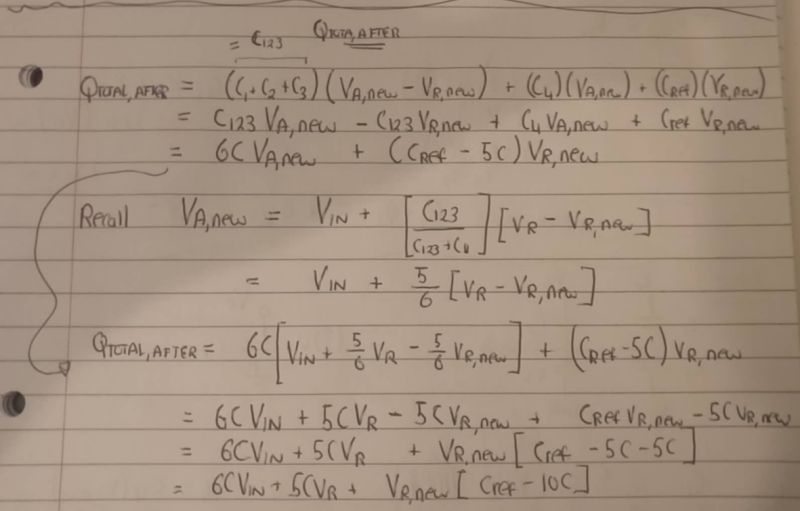 = C123 QTOTA,AFTER
QTOTAL,AFTER = (C1+C2+C3)(VA,new - VR,new) + (C4)(VA,new) + (CRef)(VR,new)
= C123 VA,new - C123 VR,new + C4 VA,new + Cref VR,new
= 6C VA,new + (CREF - 5C) VR,new
Recall VA,new = VIN + [C123 / C123+C4] [VR - VR,new]
= VIN + 5/6 [VR - VR,new]
QTOTAL,AFTER = 6C[VIN + 5/6 VR - 5/6 VR,new] + (CRef-5C) VR,new
= 6CVIN + 5CVR - 5CVR,new + CRef VR,new - 5CVR,new
= 6CVIN + 5CVR + VR,new [Cref - 5C - 5C]
= 6CVIN + 5CVR + VR,new [Cref - 10C]